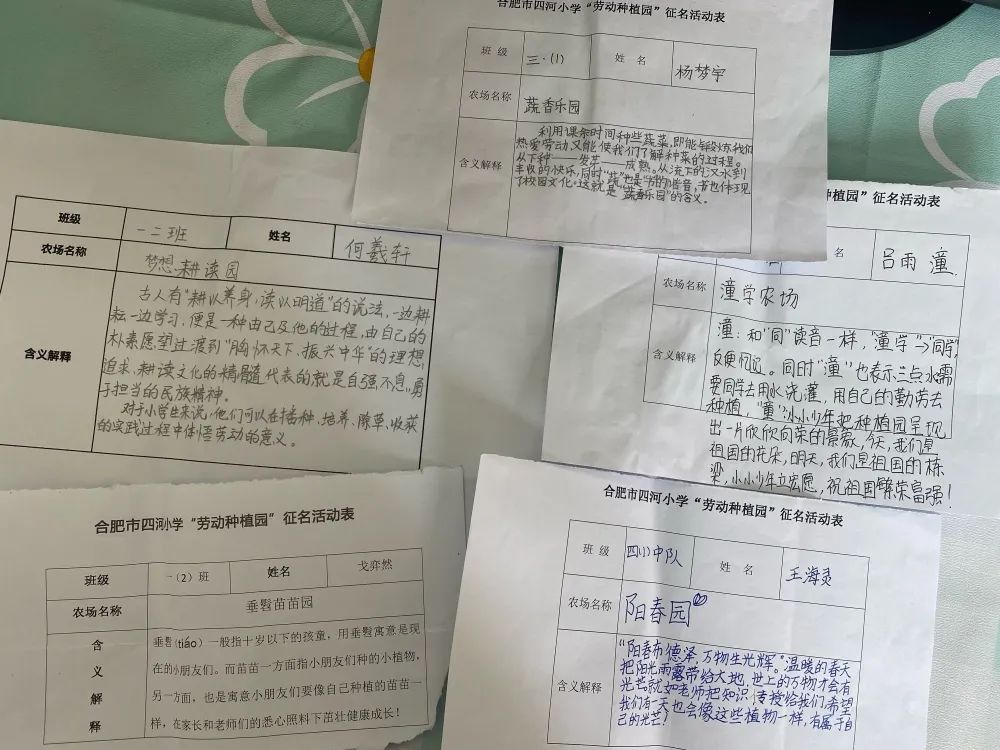 合肥市四河小学“劳动种植园”征名活动表
班 级 三·(1) 姓 名 杨梦宇
农场名称 蔬香乐园
含义解释
利用课余时间种些蔬菜,即能锻炼我们
热爱劳动,又能使我们了解种菜的过程。
从下种——发芽——成熟。从流下的汗水到
丰收的快乐,同时“蔬”也是“书”的谐音,书也体现
了校园文化。这就是“蔬香乐园”的含义。
班级 一二班 姓名 何羲轩
农场名称 梦想耕读园
含义解释
古人有“耕以养身,读以明道”的说法,一边耕
耘一边学习,便是一种由己及他的过程,由自己的
朴素愿望过渡到“胸怀天下、振兴中华”的理想
追求,耕读文化的精髓代表的就是自强不息,勇
于担当的民族精神。
对于小学生来说,他们可以在播种、培养、除草、收获
的实践过程中体悟劳动的意义。
种植园”征名活动表
名 吕雨潼
农场名称 潼学农场
含义解释
潼:和“同”读音一样,“潼学”→“同学”,
同时“潼”也表示三点水需
要同学去用水浇灌,用自己的勤劳去
种植,“童”:小小少年把种植园呈现
出一片欣欣向荣的景象,今天,我们是
祖国的花朵,明天,我们是祖国的栋
梁,小小少年立宏愿,祝祖国繁荣富强!
合肥市四河小学“劳动种植园”征名活动表
班级 一(2)班 姓名 戈弈然
农场名称 垂髫苗苗园
含义解释
垂髫(tiáo)一般指十岁以下的孩童,用垂髫寓意是现
在的小朋友们。而苗苗一方面指小朋友们种的小植物,
另一方面,也是寓意小朋友们要像自己种植的苗苗一
样,在家长和老师们的悉心照料下茁壮健康成长!
合肥市四河小学“劳动种植园”征名活动表
班 级 四(1)中队 姓 名 王海灵
农场名称 阳春园
含义解释
“阳春布德泽,万物生光辉。”温暖的春天
把阳光雨露带给大地,世上的万物才会有
光芒。就如老师把知识传授给我们,希望
我们有一天也会像这些植物一样,有属于自
己的光芒!